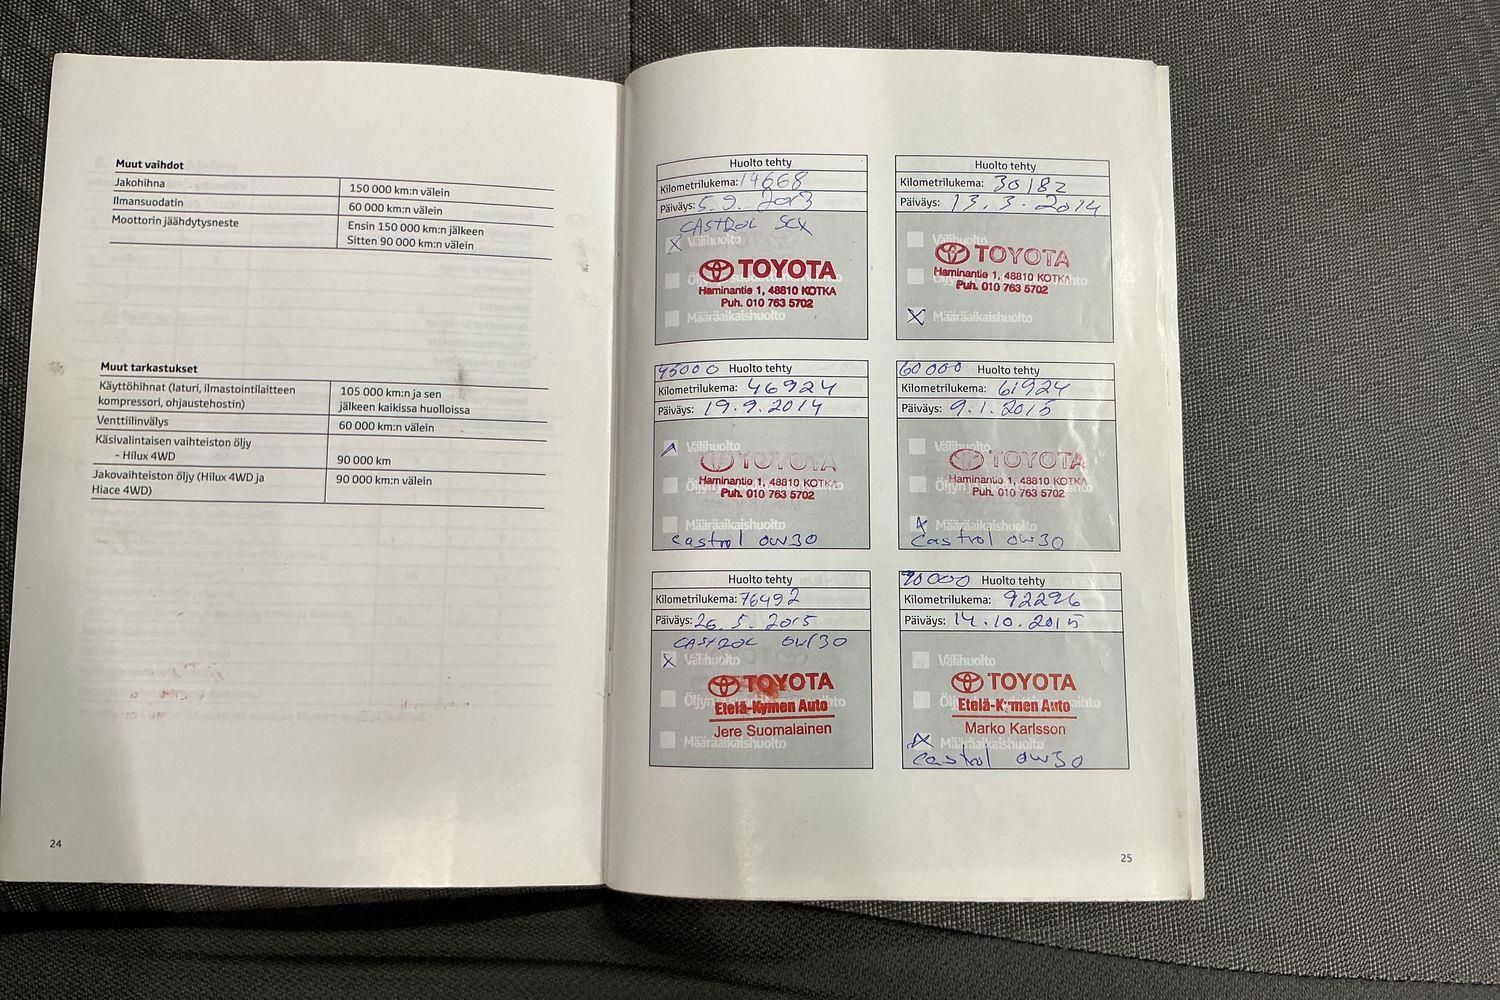 Muut vaihdot
Jakohihna 150 000 km:n välein
Ilmansuodatin 60 000 km:n välein
Moottorin jäähdytysneste Ensin 150 000 km:n jälkeen
Sitten 90 000 km:n välein
Muut tarkastukset
Käyttöhihnat (laturi, ilmastointilaitteen
kompressori, ohjaustehostin)
105 000 km:n ja sen
jälkeen kaikissa huolloissa
Venttiilinvälys 60 000 km:n välein
Käsivalintaisen vaihteiston öljy
- Hilux 4WD 90 000 km
Jakovaihteiston öljy (Hilux 4WD ja
Hiace 4WD)
90 000 km:n välein
24
Huolto tehty
Kilometrilukema: 14668
Päiväys: 5.9.2013
CASTROL SCX
Välihuolto
TOYOTA
Haminantie 1, 48810 KOTKA
Puh. 010 763 5702
Määräaikaishuolto
Huolto tehty
Kilometrilukema: 30182
Päiväys: 13.3.2014
Välihuolto
TOYOTA
Haminantie 1, 48810 KOTKA
Puh. 010 763 5702
Määräaikaishuolto
45000 Huolto tehty
Kilometrilukema: 46924
Päiväys: 19.9.2014
Välihuolto
TOYOTA
Haminantie 1, 48810 KOTKA
Puh. 010 763 5702
Määräaikaishuolto
Castrol 0W30
60000 Huolto tehty
Kilometrilukema: 61924
Päiväys: 9.1.2015
Välihuolto
TOYOTA
Haminantie 1, 48810 KOTKA
Puh. 010 763 5702
Määräaikaishuolto
Castrol 0W30
Huolto tehty
Kilometrilukema: 76492
Päiväys: 26.5.2015
CASTROL 0W30
Välihuolto
TOYOTA
Etelä-Kymen Auto
Jere Suomalainen
Määräaikaishuolto
90000 Huolto tehty
Kilometrilukema: 92296
Päiväys: 14.10.2015
Välihuolto
TOYOTA
Etelä-Kymen Auto
Marko Karlsson
Määräaikaishuolto
Castrol 0W30
25